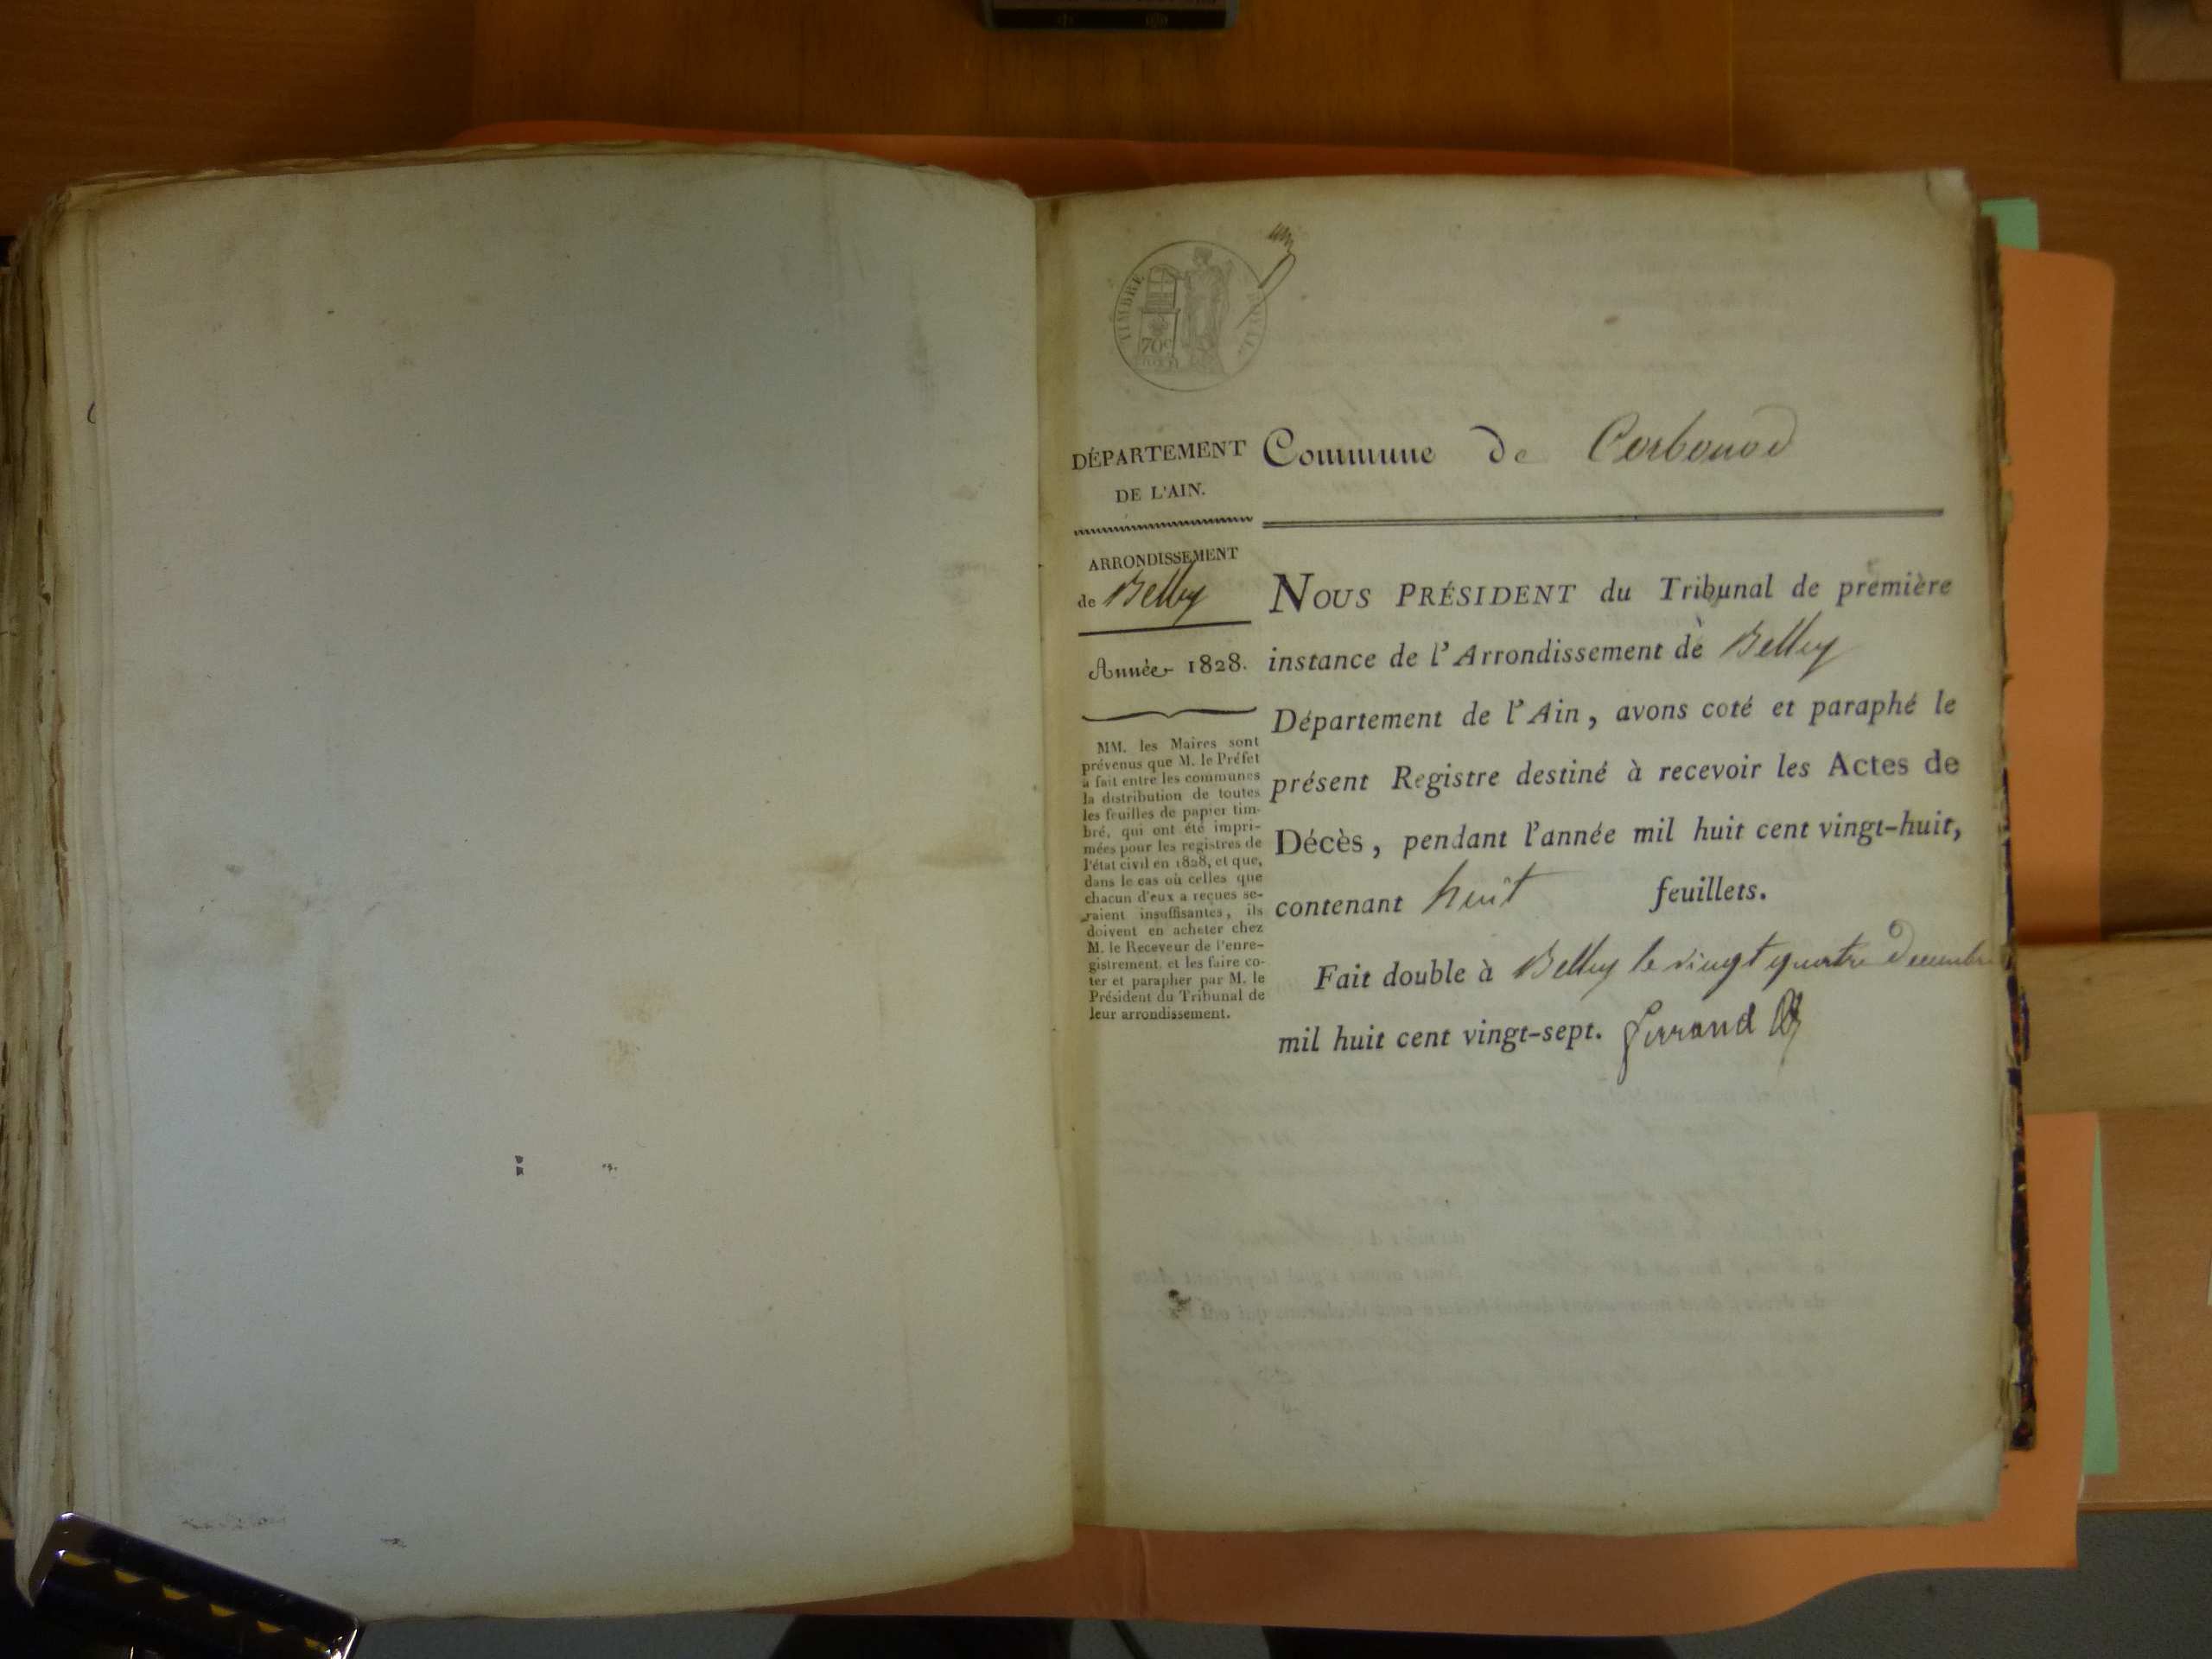 TIMBRE ROYAL
70c
DÉPARTEMENT
DE L'AIN.
ARRONDISSEMENT
de Belley
Année 1828.
MM. les Maires sont
prévenus que M. le Préfet
a fait entre les communes
la distribution de toutes
les feuilles de papier tim-
bré, qui ont été impri-
mées pour les registres de
l'état civil en 1828, et que,
dans le cas où celles que
chacun d'eux a reçues se-
raient insuffisantes, ils
doivent en acheter chez
M. le Receveur de l'enre-
gistrement, et les faire co-
ter et parapher par M. le
Président du Tribunal de
leur arrondissement.
Commune de Corbonod
NOUS PRÉSIDENT du Tribunal de première
instance de l'Arrondissement de Belley
Département de l'Ain, avons coté et paraphé le
présent Registre destiné à recevoir les Actes de
Décès, pendant l'année mil huit cent vingt-huit,
contenant huit feuillets.
Fait double à Belley le vingt quatre Decembre
mil huit cent vingt-sept.